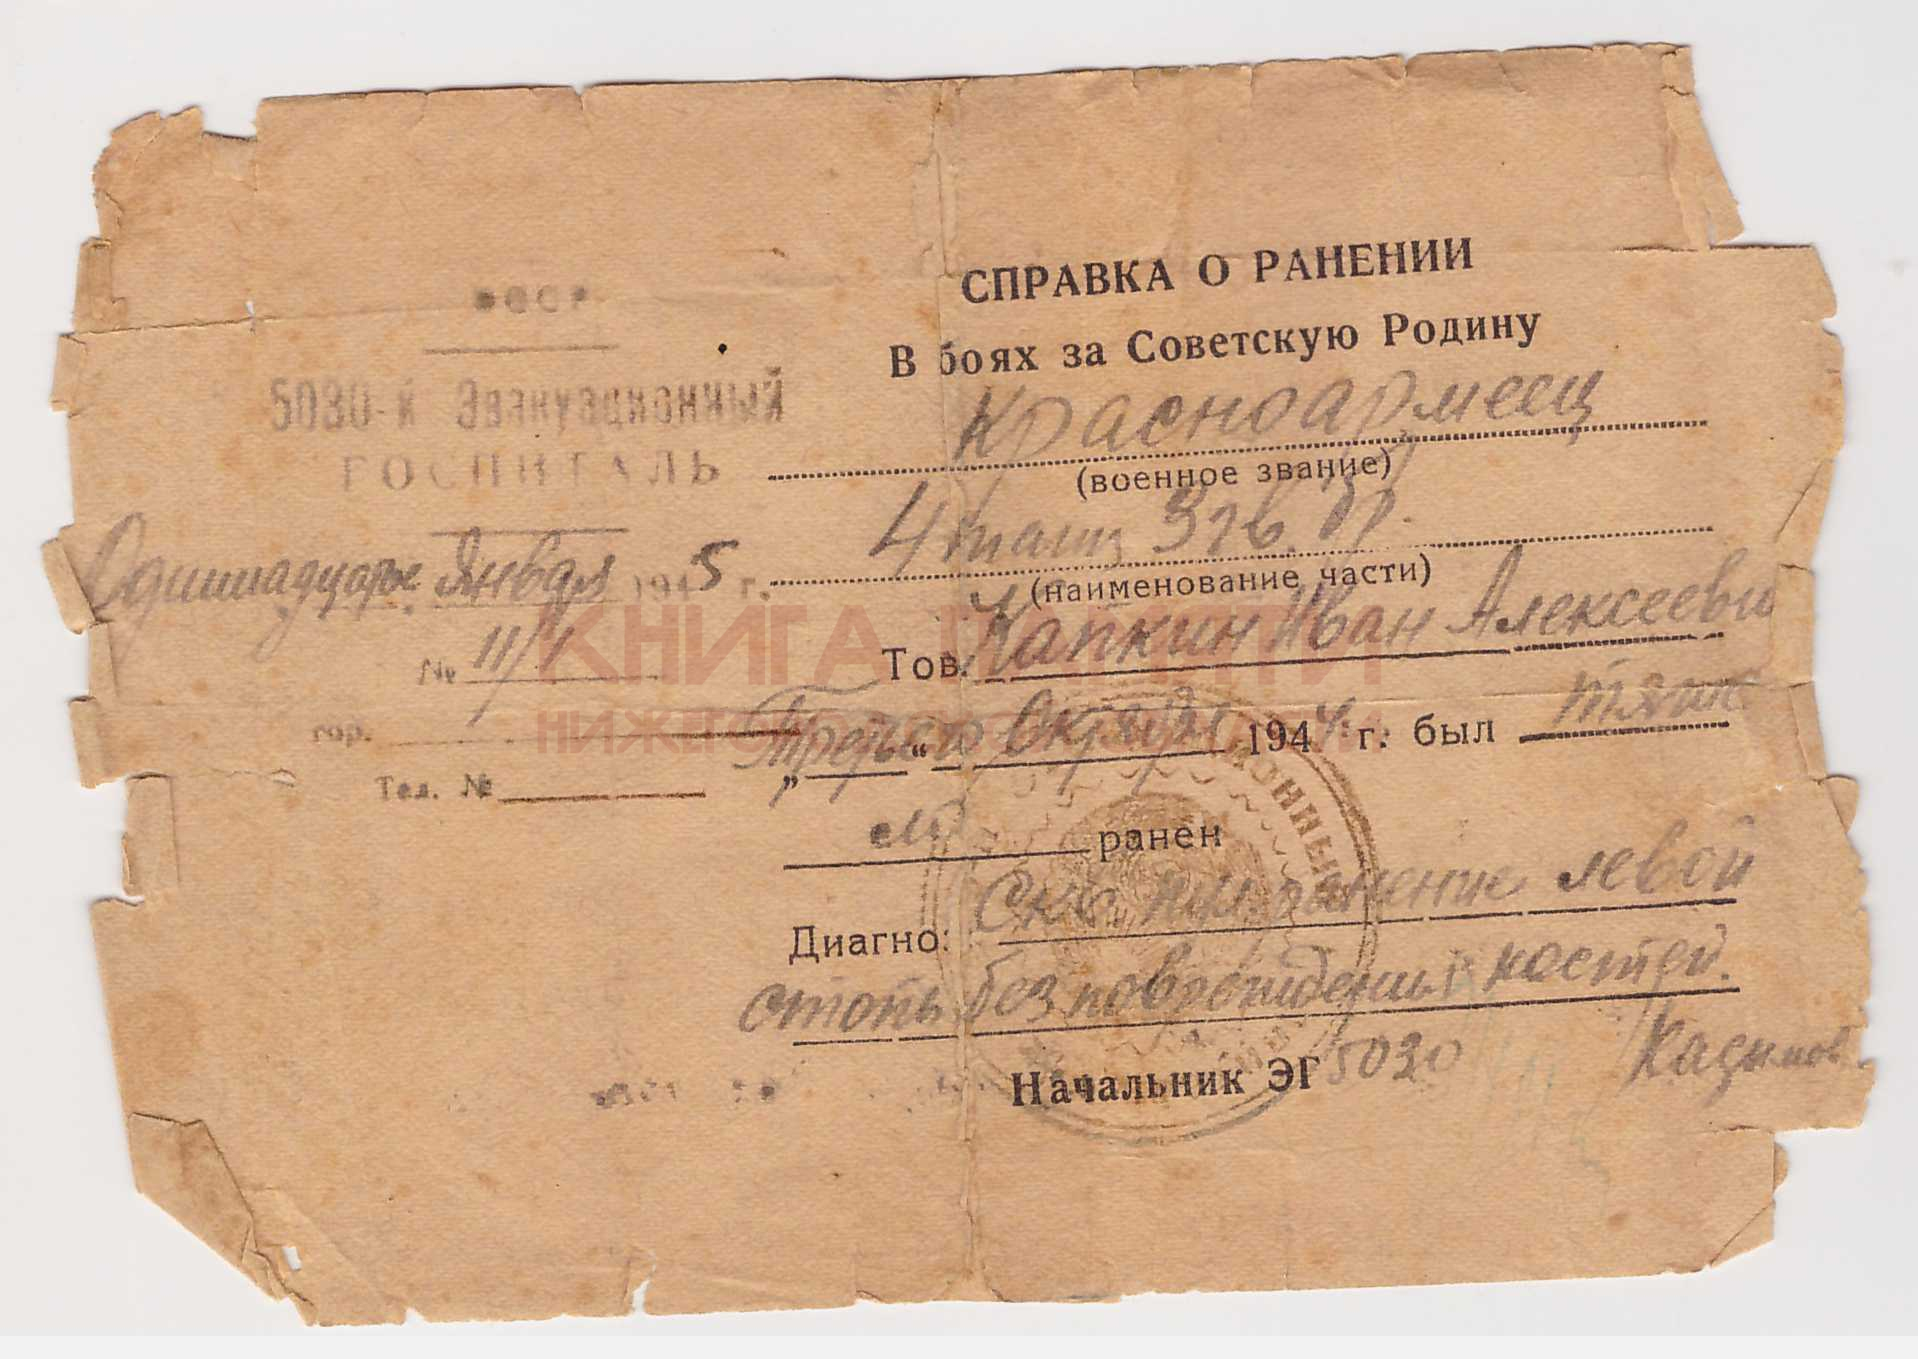 СССР
5030-й Эвакуационный
ГОСПИТАЛЬ
Одиннадцатое Января 1945 г.
№ 11/1
гор.
Тел. №
СПРАВКА О РАНЕНИИ
В боях за Советскую Родину
Красноармеец
(военное звание)
4 танк 3 гв.
(наименование части)
Тов. Капкин Иван Алексееви
„Третьего“ Октября 1944 г. был тяже
ло ранен
Диагно: Скв. пул. ранение левой
стопы без повреждения костей.
Начальник ЭГ 5030 Кадымов
КНИГА ПАМЯТИ
НИЖЕГОРОДСКОЙ ОБЛАСТИ